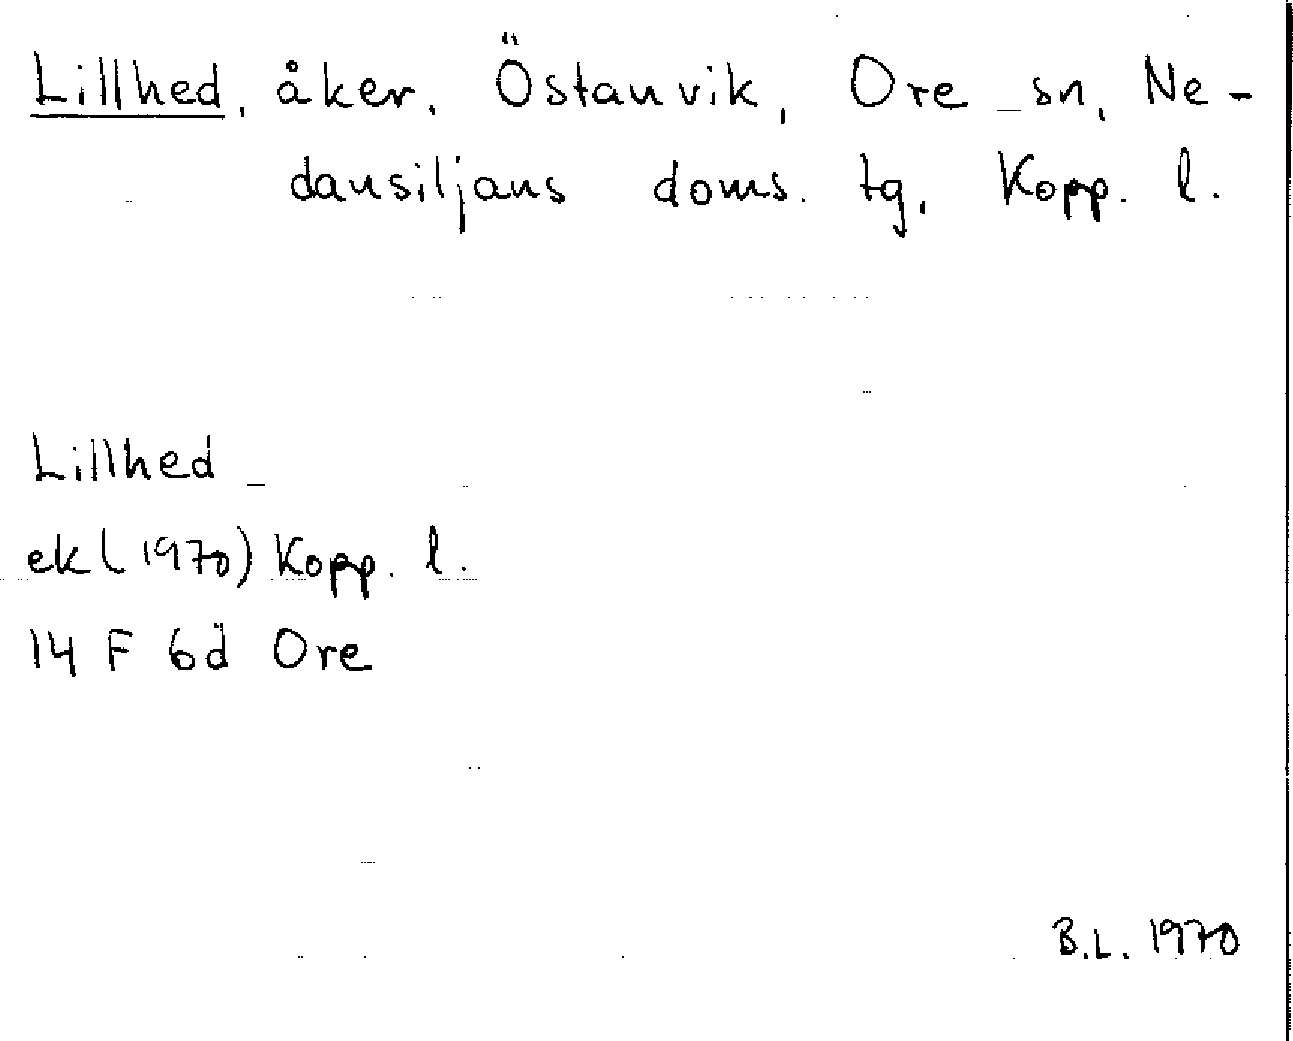 Lillhed, åker, Östanvik, Ore sn, Ne-
dansiljans doms. tg, Kopp. l.
Lillhed
ek (1970) Kopp. l.
14 F 6d Ore
B.L. 1970